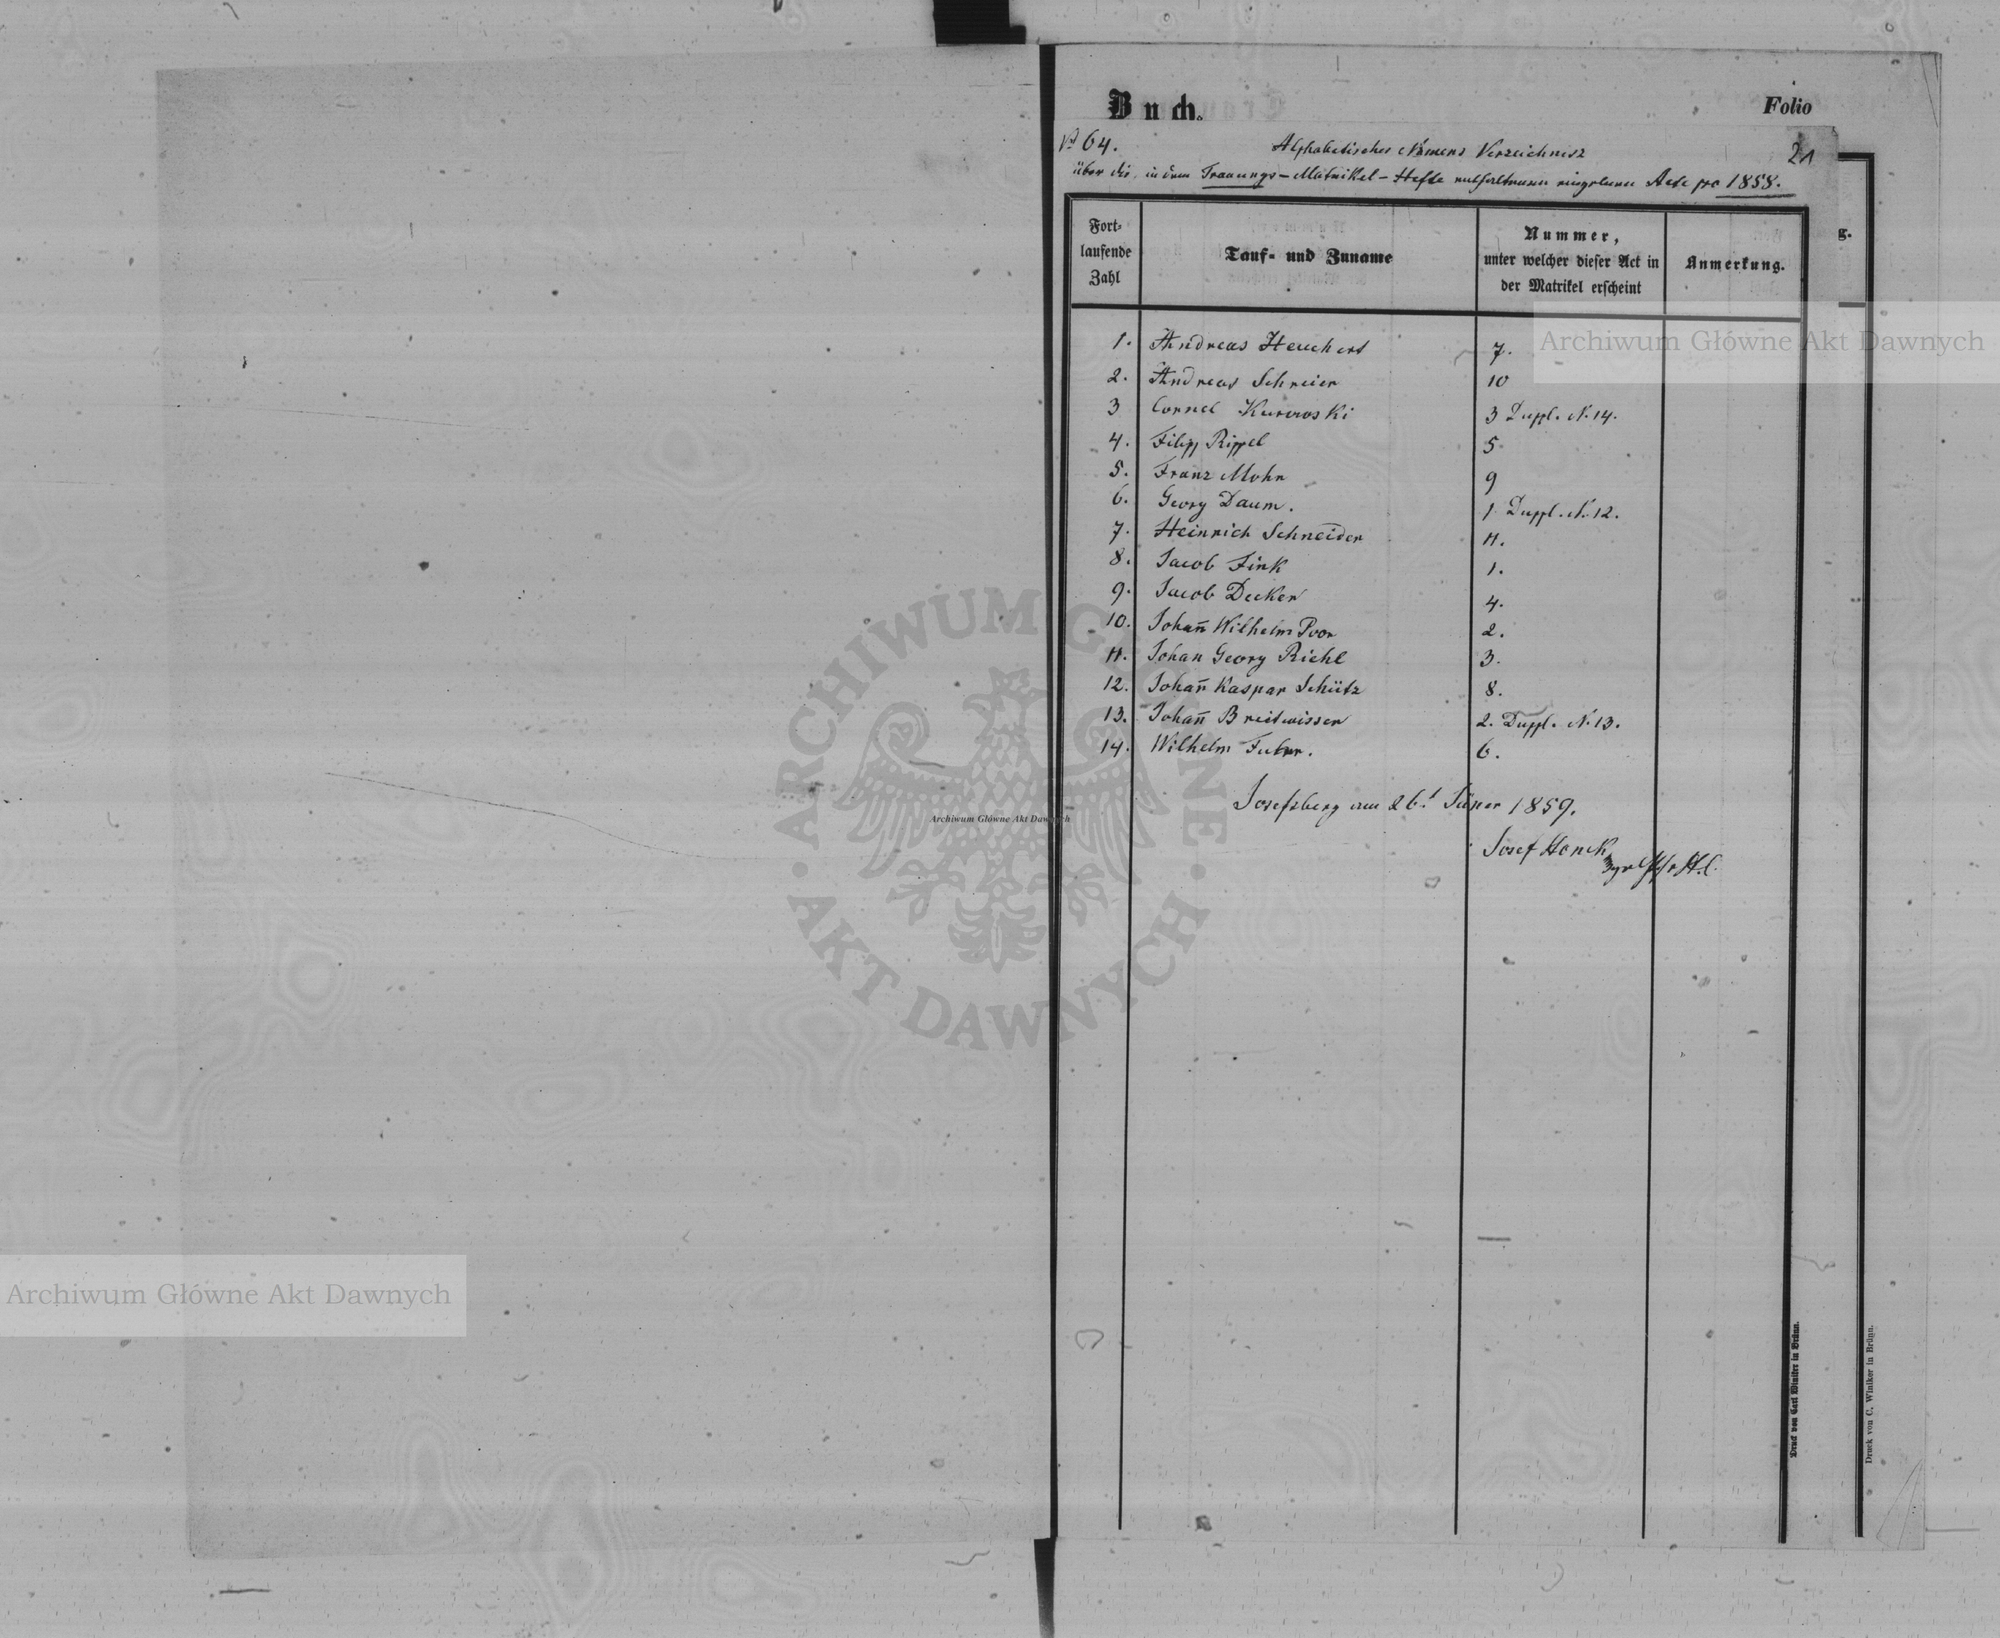 Buch.
Folio
No 64.
Alphabetisches Namens Verzeichniss
21
über die, in dem Trauungs-Matrikel-Hefte enthaltenen Acte pro 1858.
Fort-
laufende
Zahl
Tauf- und Zuname
Nummer,
unter welcher dieser Act in
der Matrikel erscheint
Anmerkung.
g.
1. Andreas Heuchert 7.
2. Andreas Schreier 10
3 Cornel Kurowski 3 Duppl. N. 14.
4. Filipp Rippel 5
5. Franz Mohr 9
6. Georg Daum. 1 Duppl. N. 12.
7. Heinrich Schneider 11.
8. Jacob Fink 1.
9. Jacob Decker 4.
10. Johan̅ Wilhelm Poor 2.
11. Johan Georg Riehl 3.
12. Johan̅ Kaspar Schütz 8.
13. Johan̅ Breitwisser 2. Duppl. N. 13.
14. Wilhelm 6.
Josefsberg am 26t Jäner 1859.
Josef Honek
Druck von Carl Winiker in Brünn.
Druck von C. Winiker in Brünn.
Archiwum Główne Akt Dawnych
ARCHIWUM GŁÓWNE
AKT DAWNYCH
Archiwum Główne Akt Dawnych
Archiwum Główne Akt Dawnych